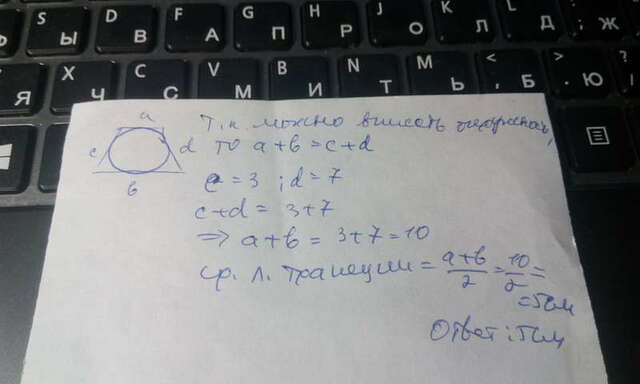 S D F G H J K L :
Ы В А П Р О Л Д ; Ж
Z X C V B N M < >
Я Ч С М И Т Ь , Б . Ю
a
c d
в
Т.к. можно вписать окружность,
то a+в=c+d
c=3 ; d=7
c+d= 3+7
=> a+в = 3+7=10
ср. л. трапеции = a+в/2 = 10/2 =
=5см
Ответ: 5см